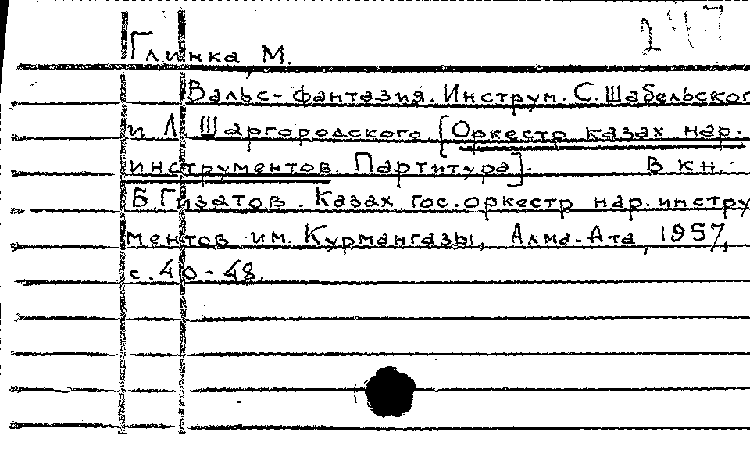 247
Глинка М.
Вальс-фантазия. Инструм. С. Шабельског
и Л. Шаргородского. [Оркестр казах нар.
инструментов. Партитура]. В кн.:
Б. Гизатов. Казах гос. оркестр нар. инстру
ментов им. Курмангазы, Алма-Ата, 1957,
с. 40-48.